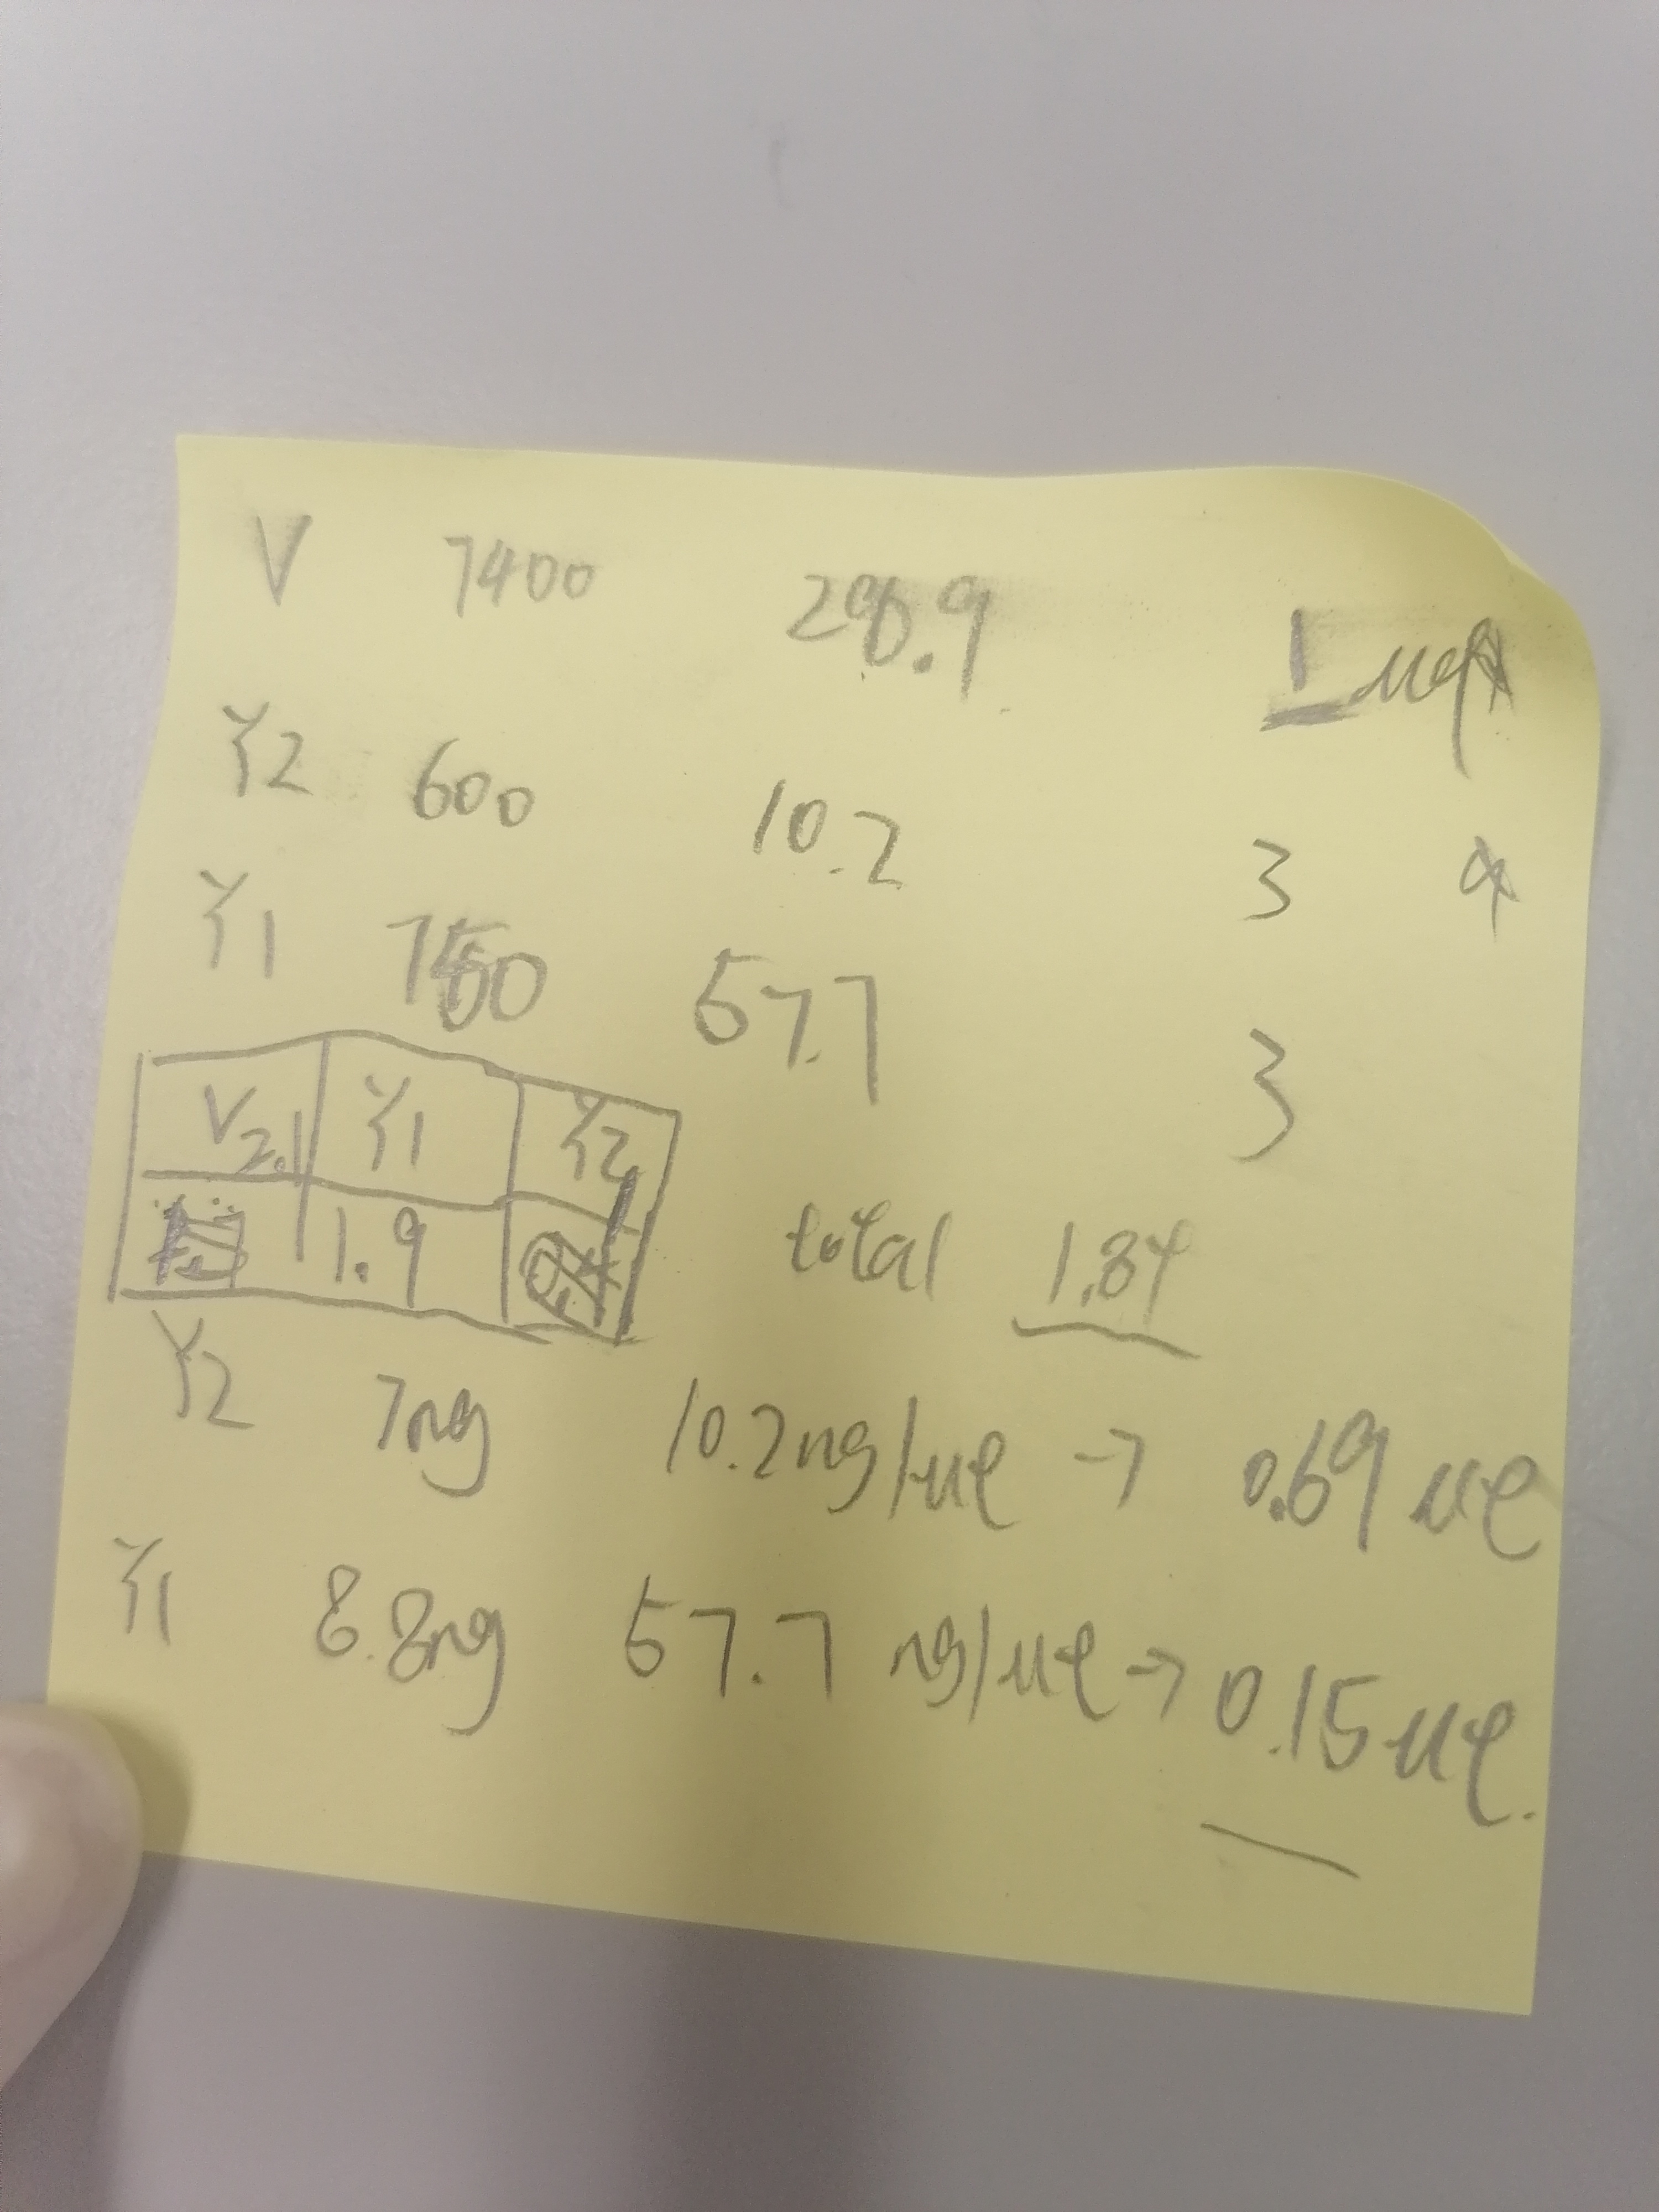 V 7400 1 μl
Y2 600 10.2 3
Y1 750 57.7 3
V 2.1 Y1 Y2
1.9
total 1.84
Y2 7ng 10.2ng/μl → 0.69 μl
Y1 8.8ng 57.7 ng/μl → 0.15 μl.